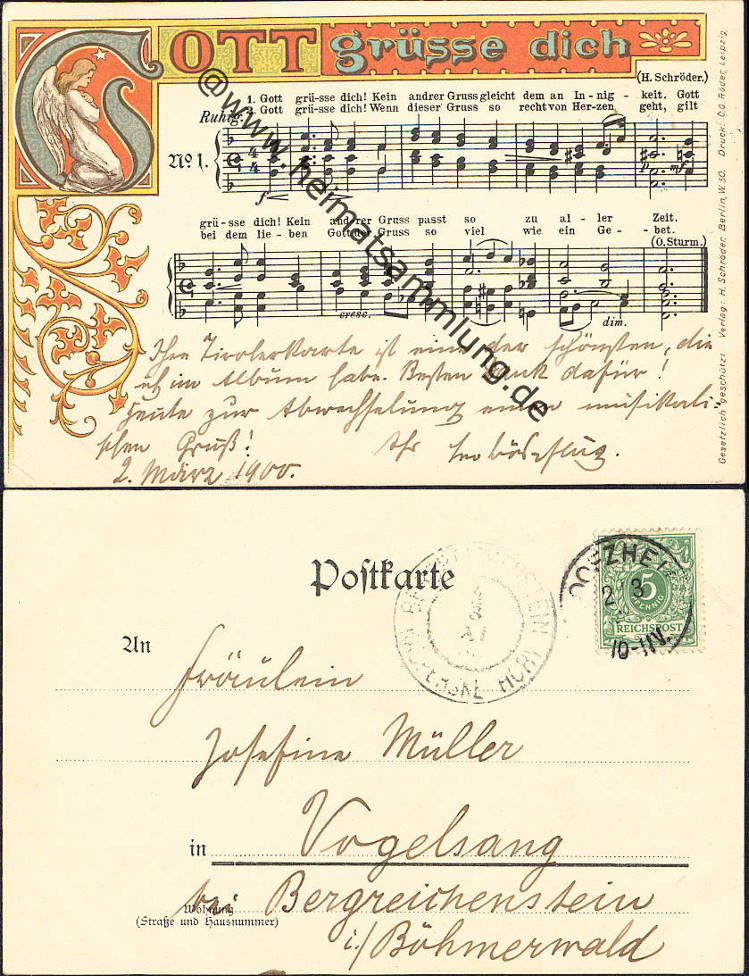 GOTT grüsse dich
(H. Schröder.)
1. Gott grü-sse dich! Kein andrer Gruss gleicht dem an In-nig-keit. Gott
2. Gott grü-sse dich! Wenn dieser Gruss so recht von Her-zen geht, gilt
Ruhig.
No 1.
f
p mf
grü-sse dich! Kein andrer Gruss passt so zu al-ler Zeit.
bei dem lie-ben Gott der Gruss so viel wie ein Ge-bet.
(O. Sturm.)
cresc. dim.
Ihre Tirolerkarte ist eine der schönsten, die
ich im Album habe. Besten Dank dafür!
Heute zur Abwechselung einen musikali-
schen Gruß! Ihr
2. März 1900.
Gesetzlich geschützt. Verlag: H. Schröder, Berlin, W.50. Druck: C.G. Röder, Leipzig.
@www.heimatsammlung.de
Postkarte
5
PFENNIG
REICHSPOST
2 3
10-11N.
An
Fräulein
Josefine Müller
in Vogelsang
bei Bergreichenstein
Wohnung
(Straße und Hausnummer)
i./Böhmerwald